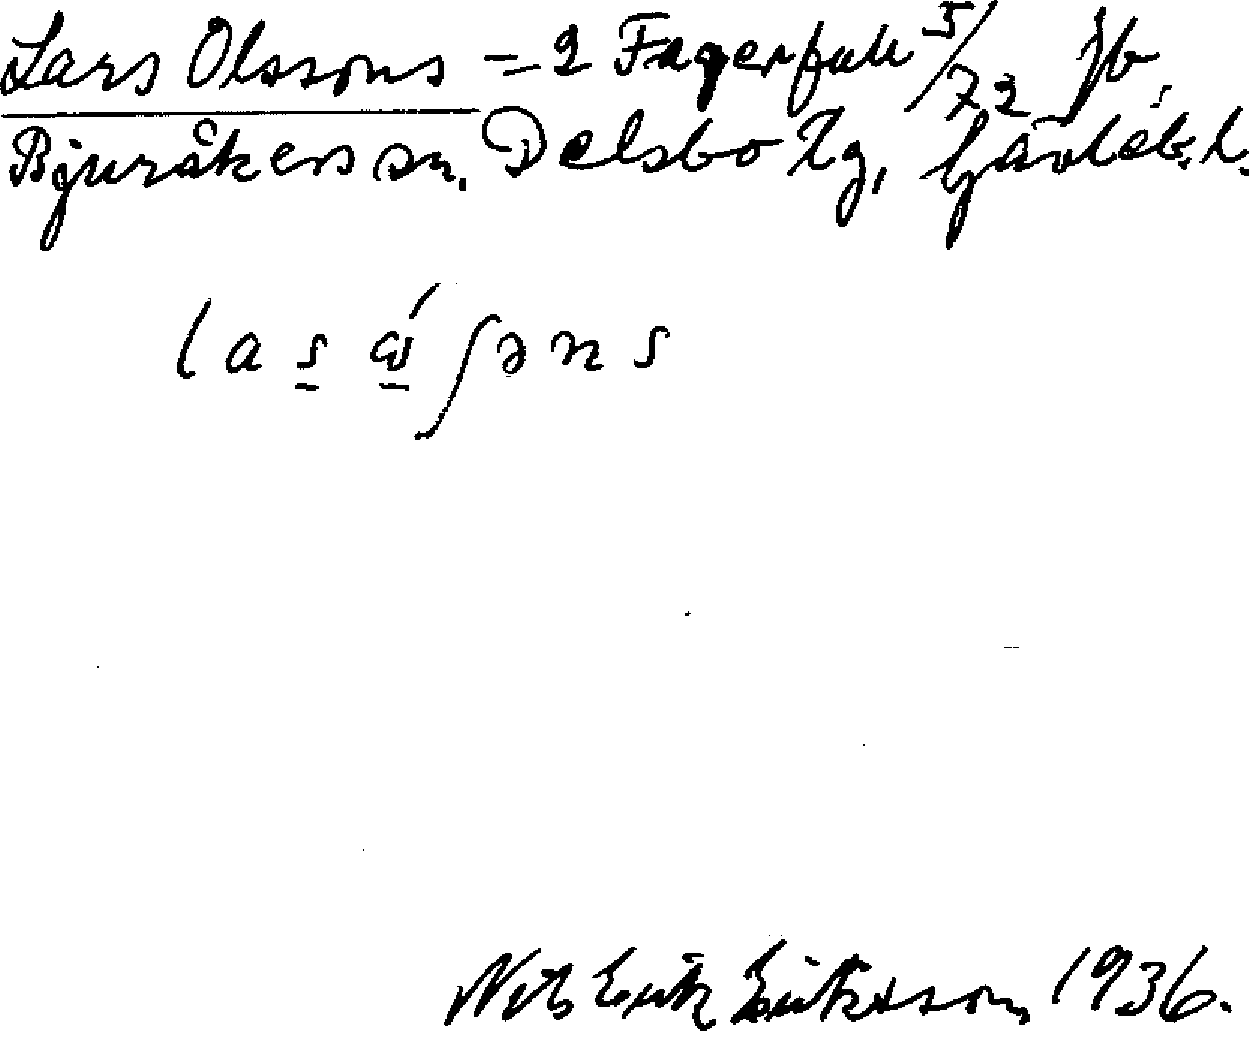 Lars Olssons = 2 Fagerfall 5/72 Jb,
Bjuråkers sn. Delsbo tg, Gävleb. l.
las ώʃəns
Nils Erik Eriksson 1936.